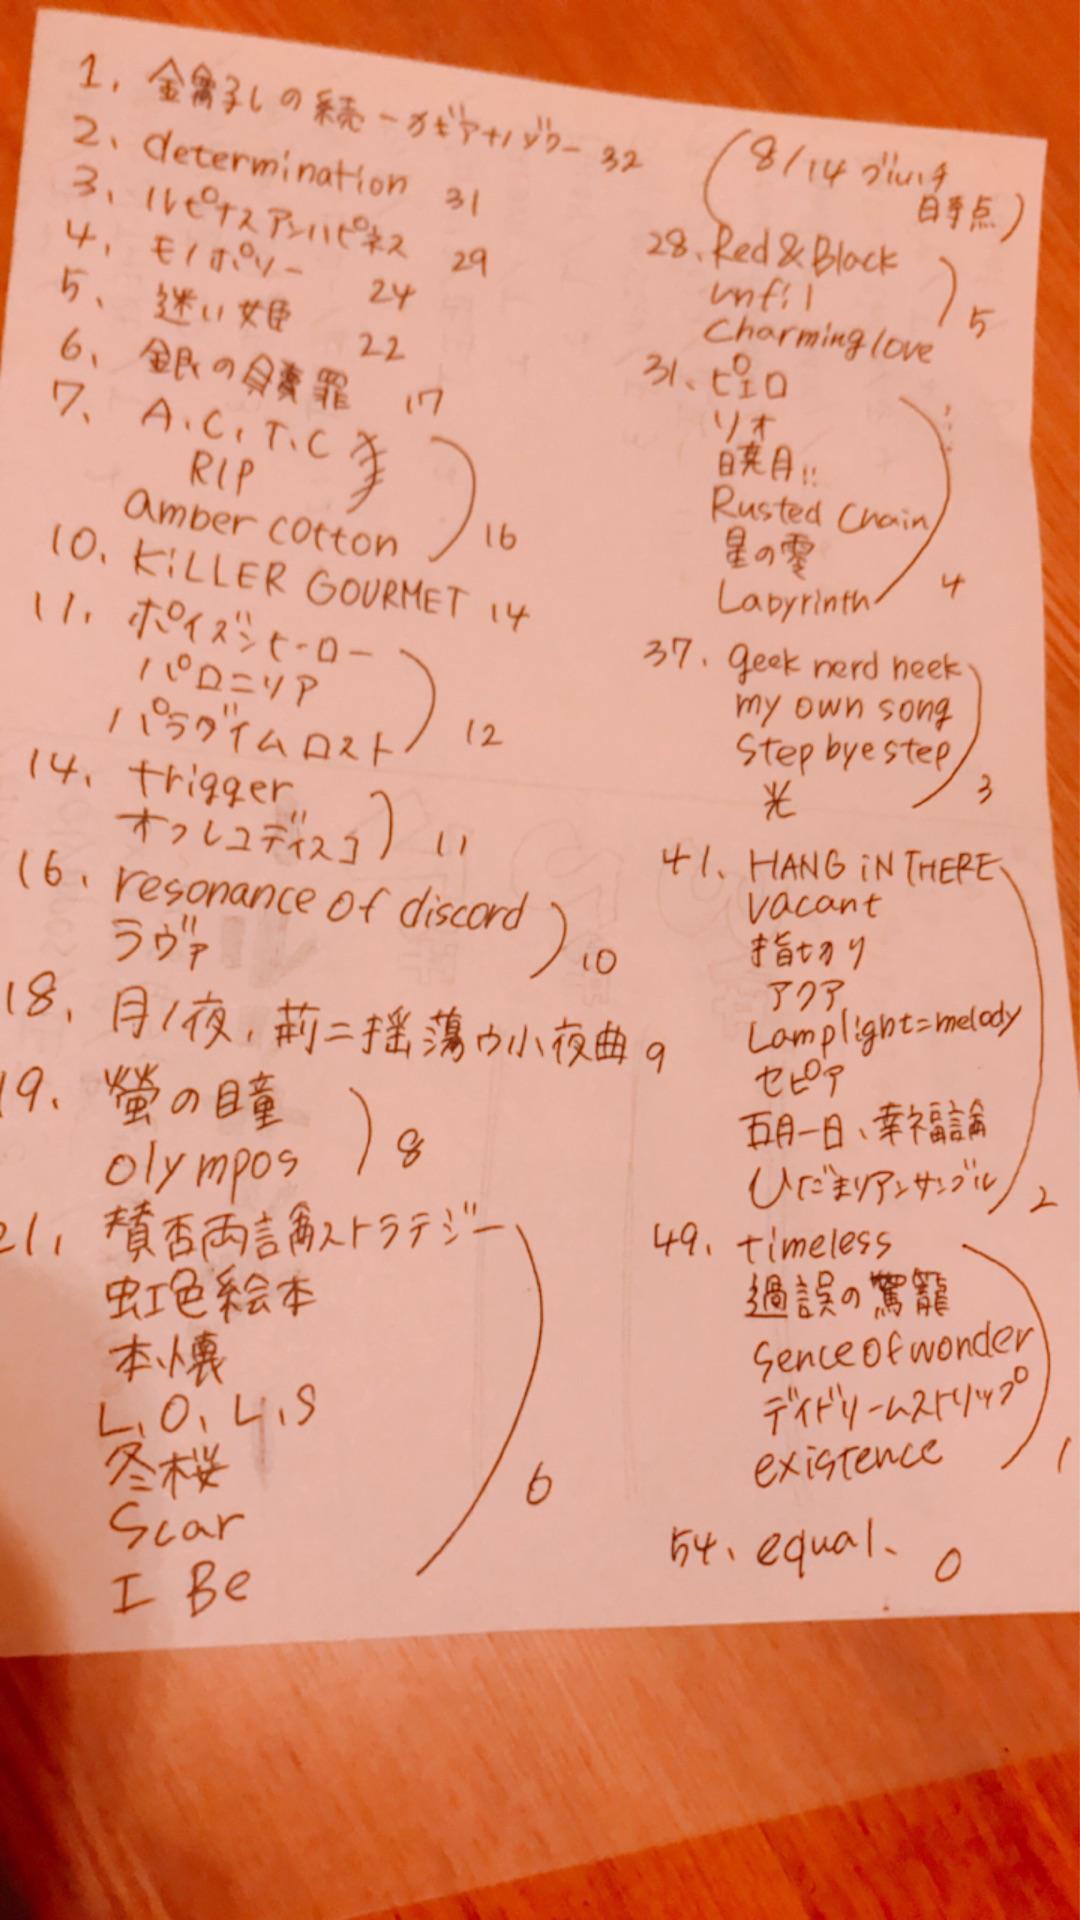 1. 金糸しの続-カギアナノジクー 32
2. determination 31
3. ルピナスアンハピネス 29
4. モノポリー 24
5. 迷い姫 22
6. 銀の贖罪 17
7. A.C.T.C
RIP
amber cotton 16
10. KiLLER GOURMET 14
11. ポイズンヒーロー
パロニリア
パラダイムロスト 12
14. trigger
オフレコディスコ 11
16. resonance of discord
ラヴァ 10
18. 月ノ夜、荊ニ揺蕩ウ小夜曲 9
19. 螢の瞳
olympos 8
21. 賛否両論ストラテジー
虹色絵本
本懐
L.O.L.S
冬桜
Scar
I Be 6
(8/14
時点)
28. Red & Black
unfil
Charming love 5
31. ピエロ
リオ
暁月!!
Rusted Chain
星の雫
Labyrinth 4
37. geek nerd neek
my own song
Step bye step
光 3
41. HANG iN THERE
vacant
指切り
アクア
Lamplight=melody
セピア
五月一日、幸福論
ひだまりアンサンブル 2
49. timeless
過誤の鴛籠
Sence of wonder
デイドリームストリップ
existence 1
54. equal. 0